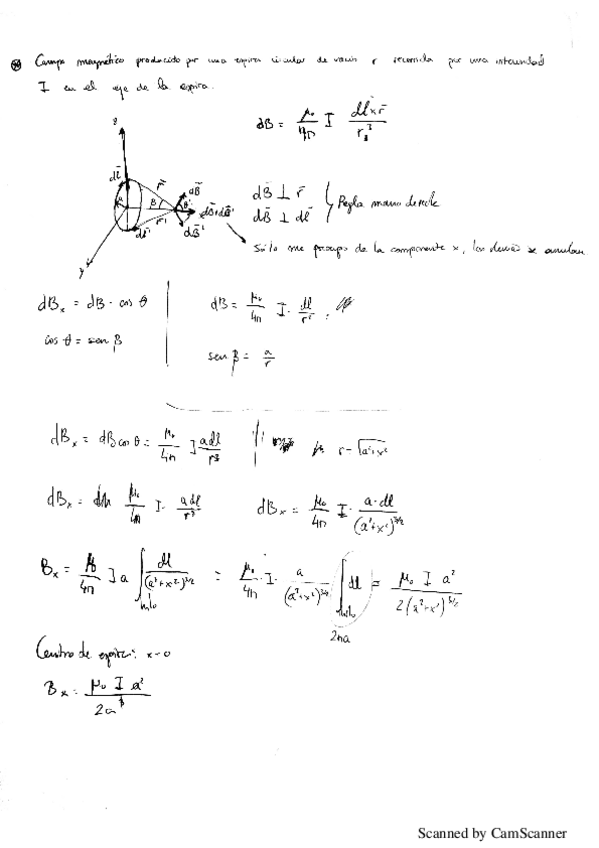 Campo magnético producido por una espira circular de radio r recorrida por una intensidad
I en el eje de la espira.
dB = μ₀/4π I dl̄ x r̄/r³
z
dl̄
a
r̄
β
dB̄
θ
dB̄+dB̄'
r̄'
dl̄'
dB̄'
y
dB̄ ⊥ r̄
dB̄ ⊥ dl̄
Regla mano derecha
Sólo me preocupo de la componente x, las demás se anulan
dBₓ = dB · cos θ
cos θ = sen β
dB = μ₀/4π I · dl/r²
sen β = a/r
dBₓ = dB cos θ = μ₀/4π I a dl/r³
r = √a²+x²
dBₓ = μ₀/4π I · a dl/r³
dBₓ = μ₀/4π I · a · dl/(a²+x²)^3/2
Bₓ = μ₀/4π I a ∫hilo dl/(a²+x²)^3/2 = μ₀/4π · I · a/(a²+x²)^3/2 ∫hilo dl = μ₀ I a²/2(a²+x²)^3/2
2πa
Centro de espira: x=0
Bₓ = μ₀ I a²/2a³
Scanned by CamScanner